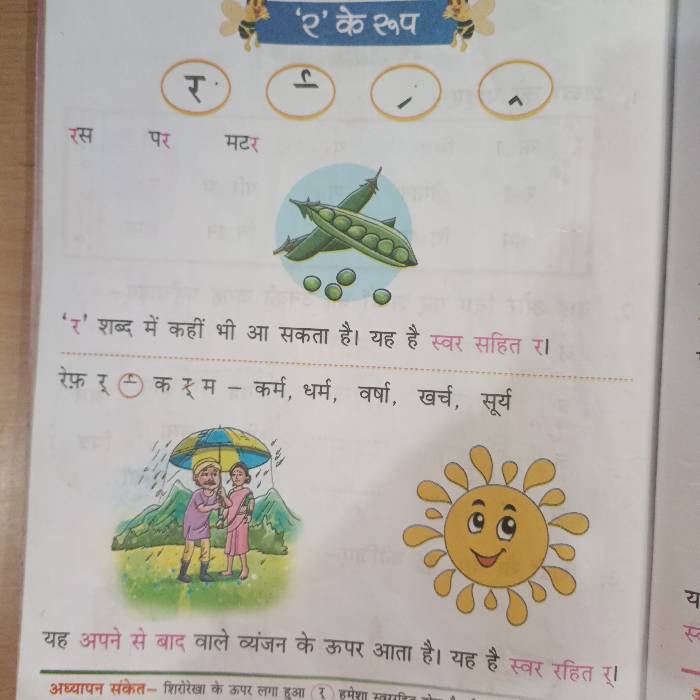 'र' के रूप
र
रस पर मटर
'र' शब्द में कहीं भी आ सकता है। यह है स्वर सहित र।
रेफ़ र् क र् म – कर्म, धर्म, वर्षा, खर्च, सूर्य
यह अपने से बाद वाले व्यंजन के ऊपर आता है। यह है स्वर रहित र्।
अध्यापन संकेत– शिरोरेखा के ऊपर लगा हुआ हमेशा